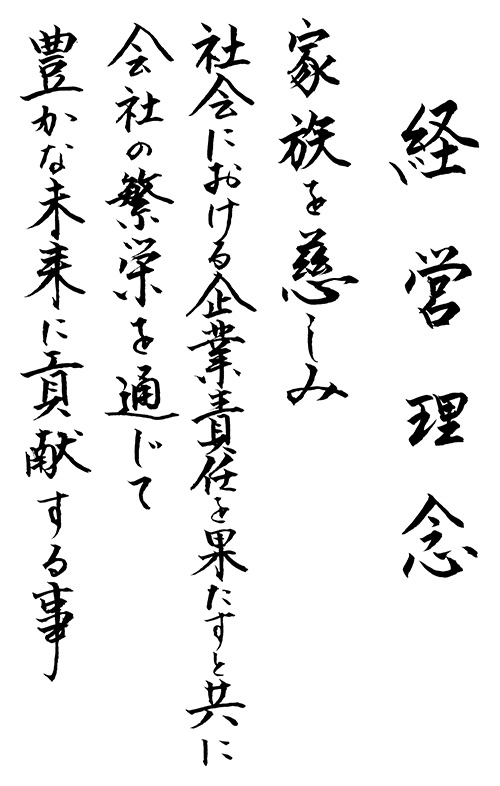 経営理念
家族を慈しみ
社会における企業責任を果たすと共に
会社の繁栄を通じて
豊かな未来に貢献する事